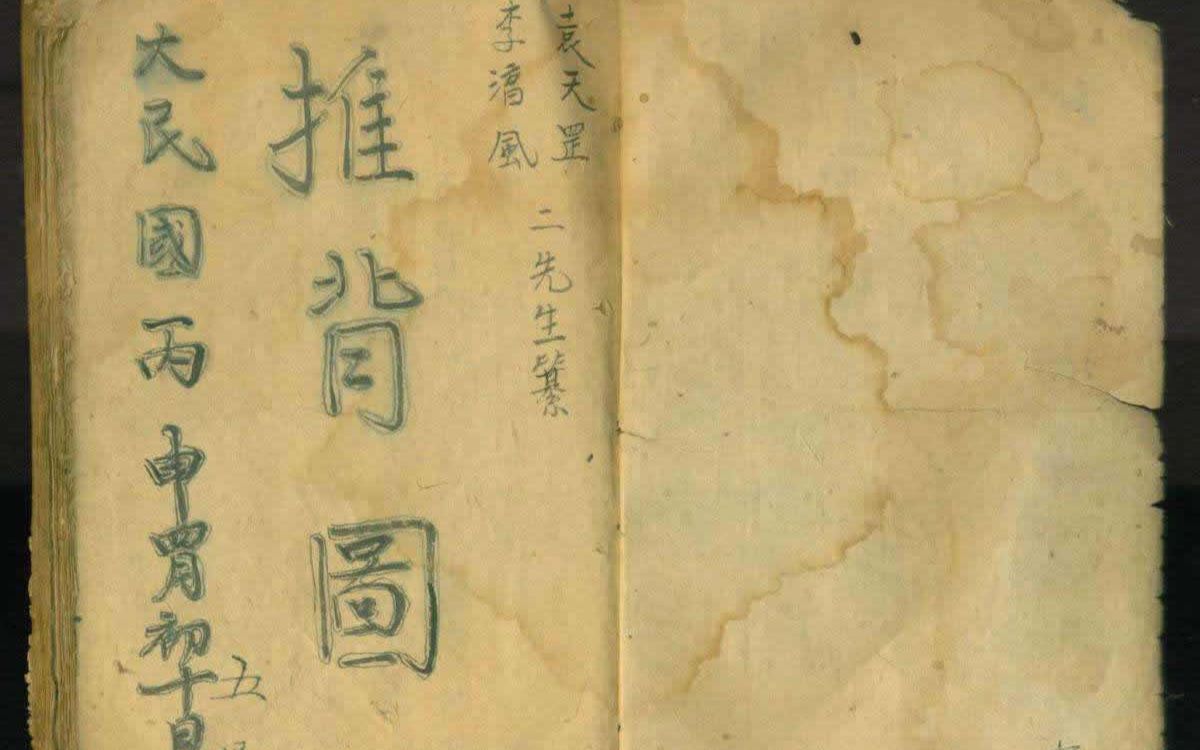 袁天罡
李淳風
二先生纂
推背圖
五
大民國丙申四月初十日